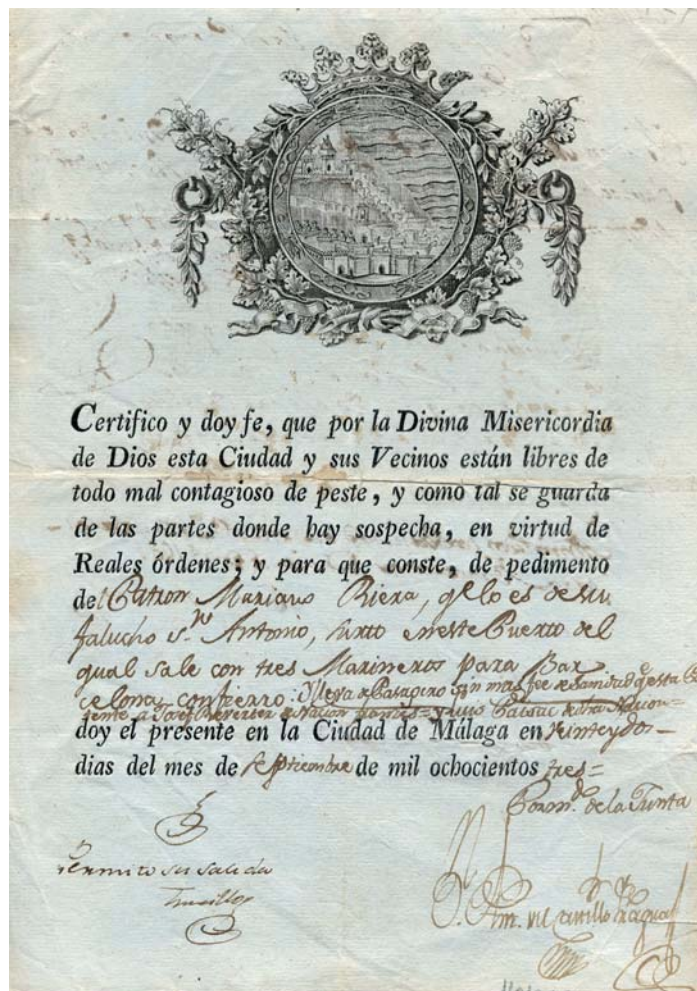 Certifico y doy fe, que por la Divina Misericordia
de Dios esta Ciudad y sus Vecinos están libres de
todo mal contagioso de peste, y como tal se guarda
de las partes donde hay sospecha, en virtud de
Reales órdenes; y para que conste, de pedimento
del Patron Mariano Riera, qe lo es de su
falucho Sn Antonio, surto en este Puerto del
qual sale con tres Marineros para Bar
celona, con fierro: Y lleva de Pasagero sin mas fee de Sanidad qe esta
doy el presente en la Ciudad de Málaga en veinte y dos
dias del mes de Septiembre de mil ochocientos tres=
Por m.do de la Junta
Permito su salida
Trucillo